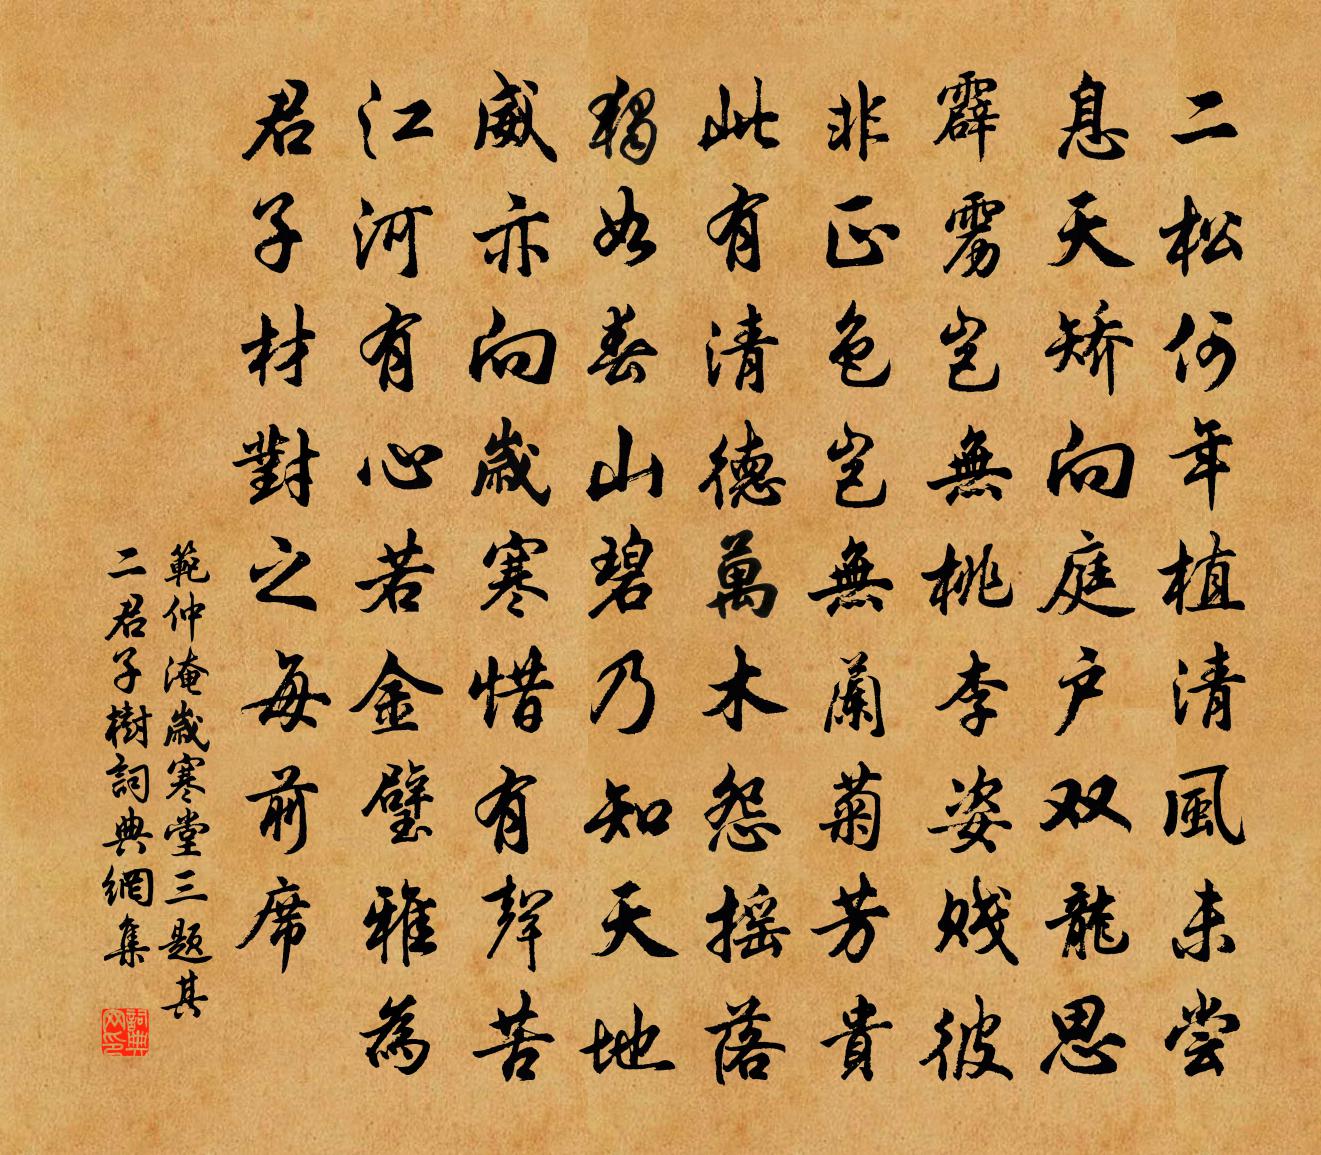 二松何年植清風未嘗
息夭矯向庭户双龍思
霹雳岂無桃李姿賤彼
非正色岂無蘭菊芳貴
此有清德萬木怨摇落
獨如春山碧乃知天地
威亦向歲寒惜有聲苦
江河有心若金璧雅為
君子材對之每前席
範仲淹歲寒堂三題其
二君子樹詞典網集
詞典
网印